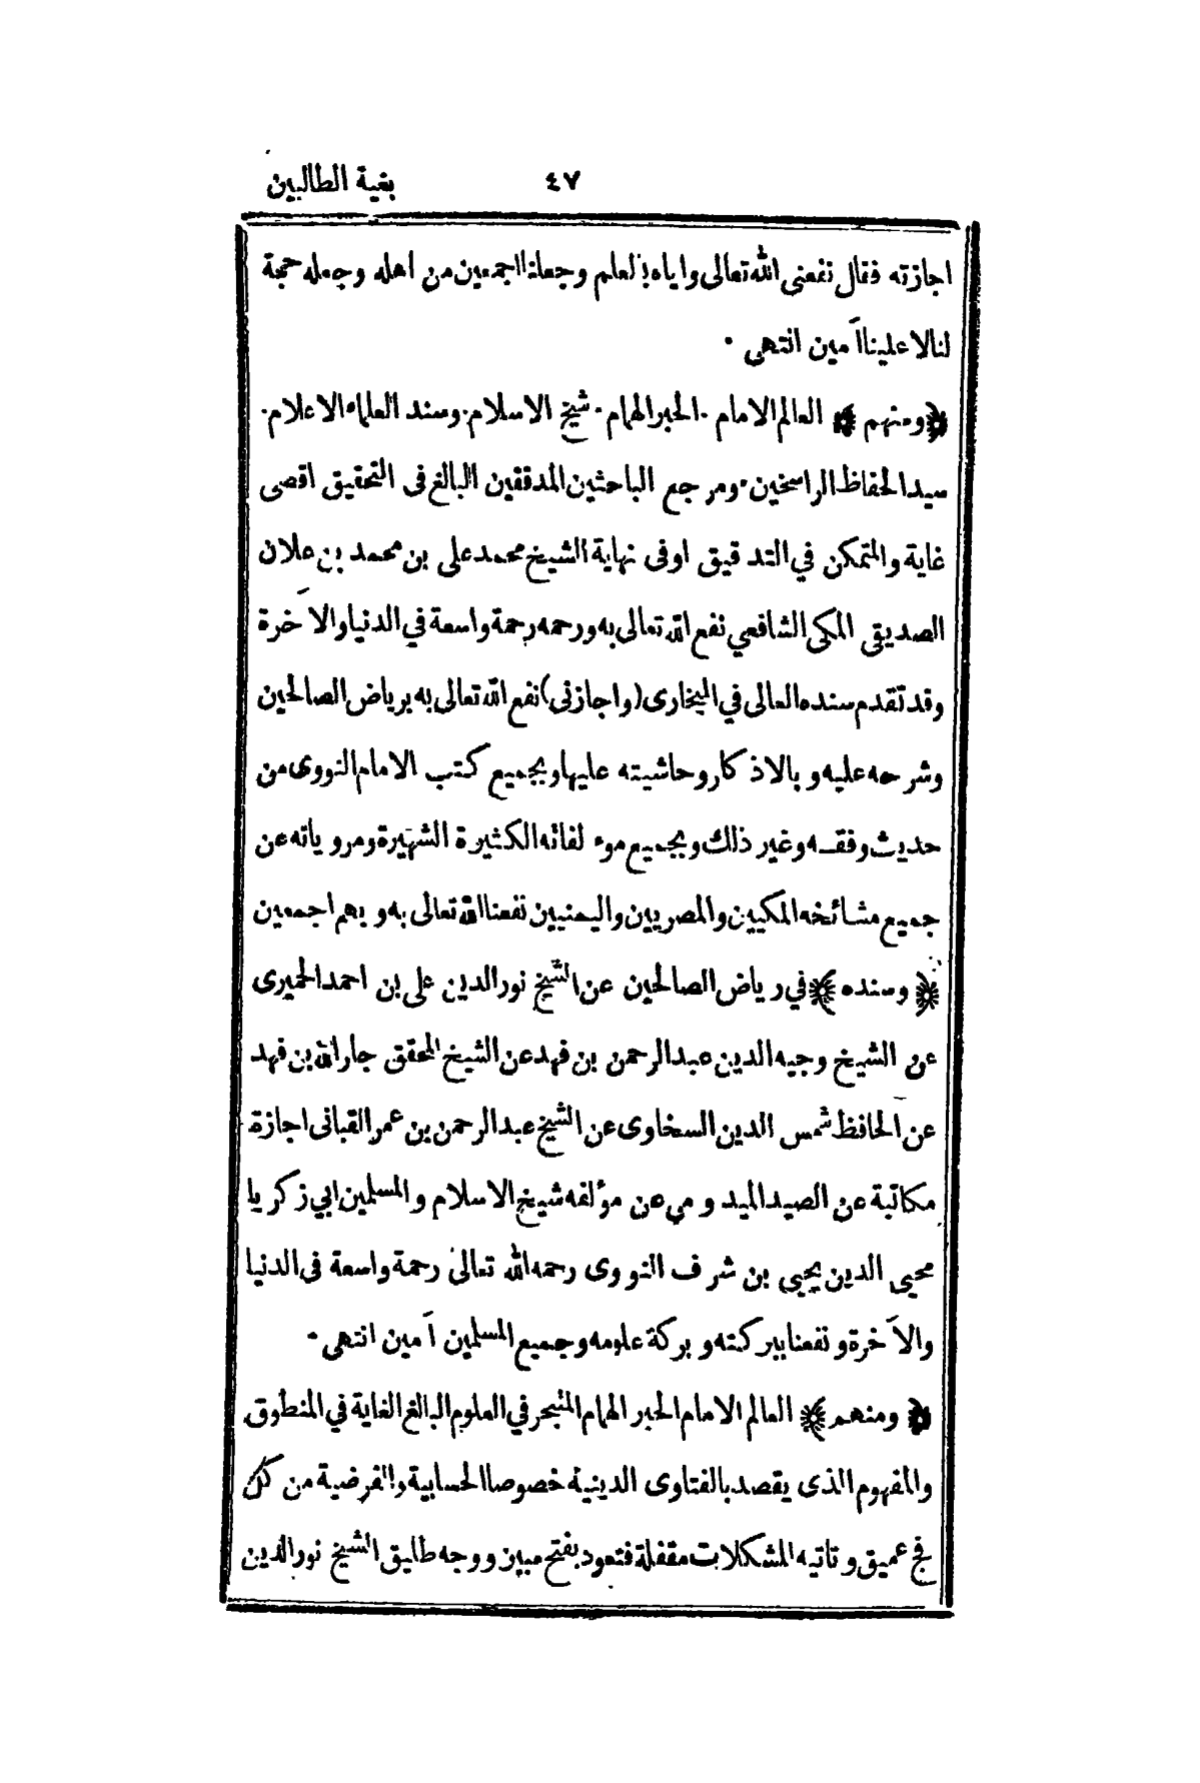 بغية الطالبين ٤٧
اجازته فقال نفعنى الله تعالى واياه بالعلم وجعلنا اجمعين من اهله وجعله حجة
لنا لا علينا آمين انتهى ٠
﴿ ومنهم ﴾ العالم الامام ٠ الحبر الهمام ٠ شيخ الاسلام ٠ وسند العلماء الاعلام ٠
سيد الحفاظ الراسخين ٠ ومرجع الباحثين المدققين البالغ فى التحقيق اقصى
غاية والمتمكن في التدقيق اوفى نهاية الشيخ محمد على بن محمد بن علان
الصديقى المكى الشافعي نفع الله تعالى به ورحمه رحمة واسعة في الدنيا والآخرة
وقد تقدم سنده العالى في البخارى (واجازنى) نفع الله تعالى به برياض الصالحين
وشرحه عليه وبالاذكار وحاشيته عليها وبجميع كتب الامام النووى من
حديث وفقه وغير ذلك وبجميع موء لفاته الكثيرة الشهيرة ومروياته عن
جميع مشائخه المكيين والمصريين واليمنيين نفعنا الله تعالى به وبهم اجمعين
﴿ وسنده ﴾ في رياض الصالحين عن الشيخ نور الدين على بن احمد الحميرى
عن الشيخ وجيه الدين عبد الرحمن بن فهد عن الشيخ المحقق جار الله بن فهد
عن الحافظ شمس الدين السخاوى عن الشيخ عبد الرحمن بن عمر القبانى اجازة
مكاتبة عن الصيد الميدومي عن مؤلفه شيخ الاسلام والمسلمين ابي زكريا
محيى الدين يحيى بن شرف النووى رحمه الله تعالى رحمة واسعة فى الدنيا
والآخرة ونفعنا ببركته وبركة علومه وجميع المسلمين آمين انتهى ٠
﴿ ومنهم ﴾ العالم الامام الحبر الهمام المتبحر في العلوم البالغ الغاية في المنطوق
والمفهوم الذى يقصد بالفتاوى الدينية خصوصا الحسابية والفرضية من كل
فج عميق وتاتيه المشكلات مقفلة فتعود بفتح مبين ووجه طليق الشيخ نور الدين